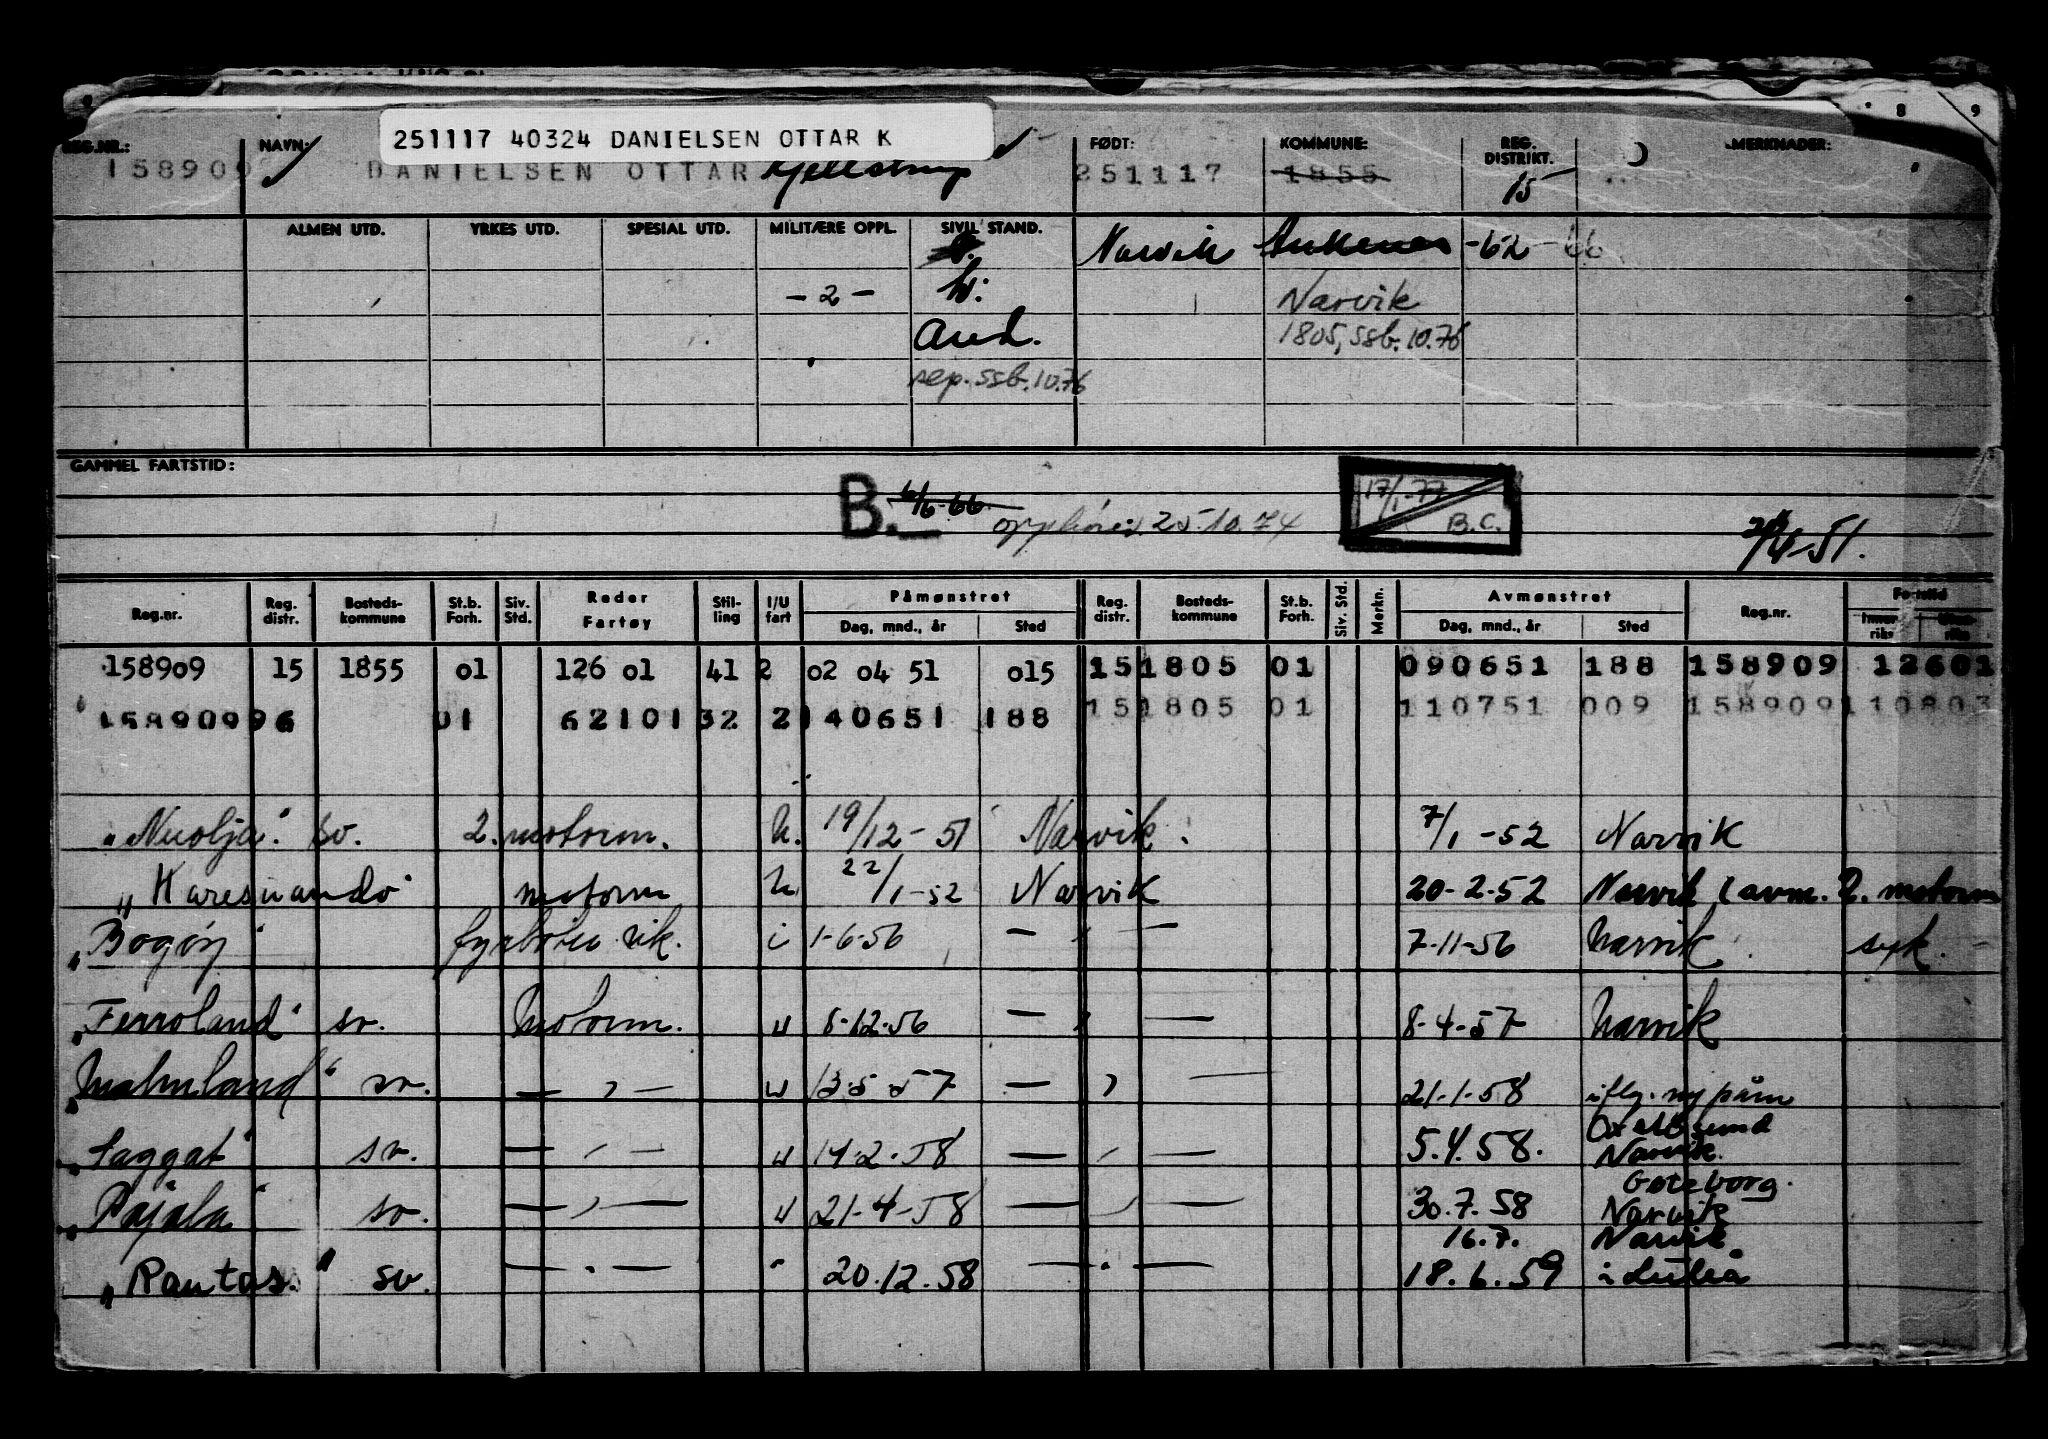 251117 40324 DANIELSEN OTTAR K
REG.NR.: NAVN: FØDT: KOMMUNE: REG. DISTRIKT. MERKNADER:
158909 DANIELSEN OTTAR Kjellstrup 251117 1855 15
ALMEN UTD. YRKES UTD. SPESIAL UTD. MILITÆRE OPPL. SIVIL STAND. Narvik Ankenes -62 -66
-2- Narvik
1805, ssb. 10.76
sep. ssb. 10.76
GAMMEL FARTSTID:
B. 6/6-66 opphører 25.10.74 17/1-77 B.C.
Reg.nr. Reg. distr. Bosteds-kommune St.b. Forh. Siv. Std. Reder Fartøy Stil-ling I/U fart Påmønstret Reg. distr. Bosteds-kommune St.b. Forh. Siv. Std. Merkn. Avmønstret Reg.nr. Fartstid
Dag, mnd., år Sted Dag, mnd., år Sted Innen-riks Uten-riks
158909 15 1855 01 126 01 41 2 02 04 51 015 15 1805 01 090651 188 158909 12601
158909 96 01 62101 32 2 140651 188 15 1805 01 110751 009 158909 110803
"Nuolja" sv. 2. motorm. U. 19/12-51 Narvik. 7/1-52 Narvik
"Karesuando" motorm u 22/1-52 Narvik 20-2-52 Narvik (avm. 2. motorm
"Bogøy" fyrbøter vik. i 1-6-56 — " — 7-11-56 Narvik. syk.
"Ferroland" sv. Motorm. u 8-12-56 — " — 8-4-57 Narvik
"Malmland" sv. — " — u 13-5-57 — " — 21-1-58 iflg. ny påm
Oxelösund
"Saggat" sv. — " — u 14-2-58 — " — 5.4.58. Narvik.
Gøteborg.
"Pajala" sv. — " — u 21-4-58 — " — 30.7.58 Narvik
16.7. Narvik
"Rautas." sv. — " — " 20.12.58 — " — 18.6.59 i Luleå